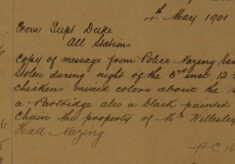 4th May 1901
From Supt Duke
All Stations
Copy of message from Police Nazing Ess
Stolen during night of the 3rd inst 12
chickens mixed colors about the
a Partridge also a black painted
Chain the property of Mr Wellesley
Hall Nazing
P.C 16